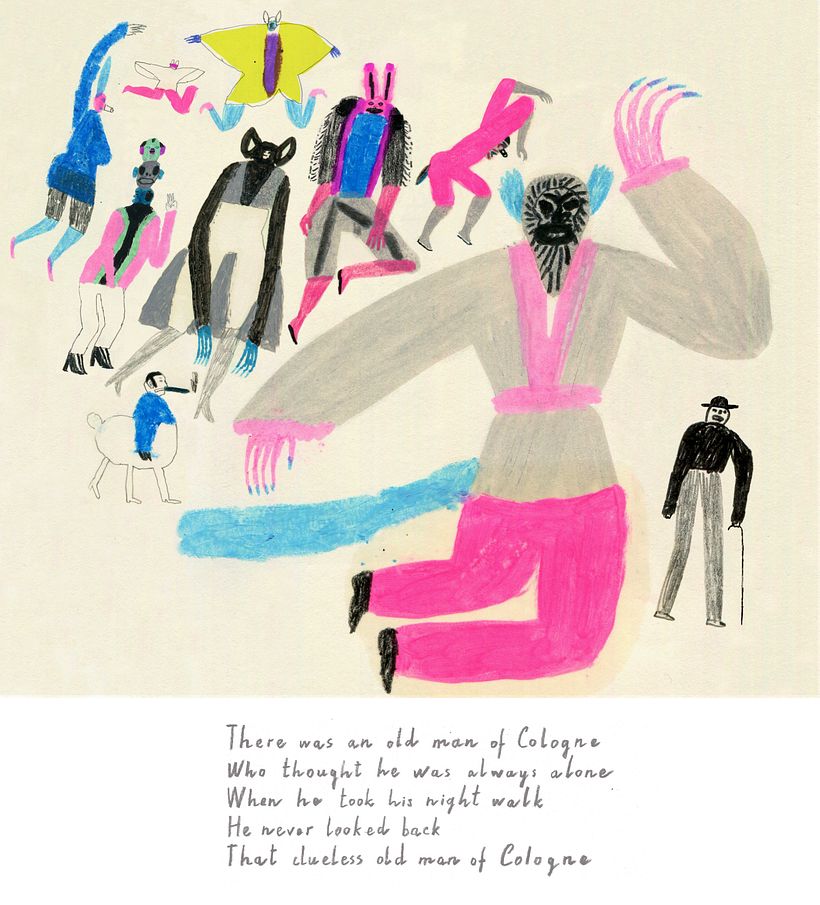 There was an old man of Cologne
Who thought he was always alone
When he took his night walk
He never looked back
That clueless old man of Cologne